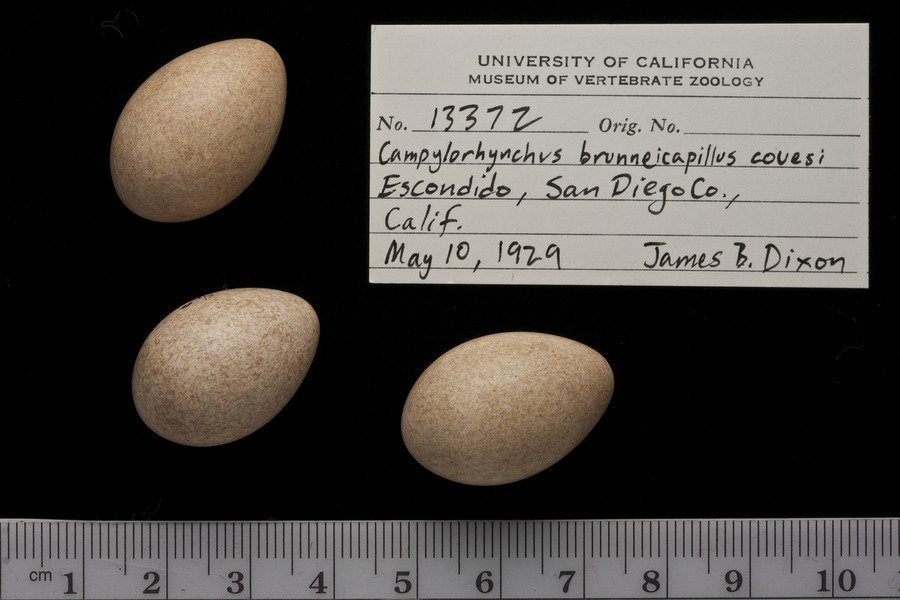 UNIVERSITY OF CALIFORNIA
MUSEUM OF VERTEBRATE ZOOLOGY
No. 13372 Orig. No.
Campylorhynchus brunneicapillus couesi
Escondido, San Diego Co.,
Calif.
May 10, 1929 James B. Dixon
cm 1 2 3 4 5 6 7 8 9 10